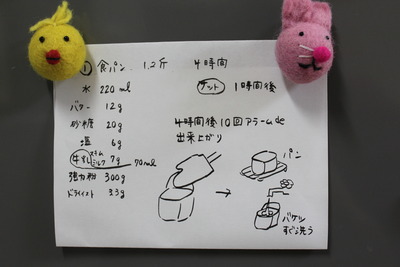 ① 食パン 1.2斤 4時間
水 220ml
バター 12g
砂糖 20g
塩 6g
牛乳 スキムミルク 7g 70ml
強力粉 300g
ドライイースト 3.3g
1時間後
4時間後10回アラームde
出来上がり
パン
バケツ
すぐ洗う